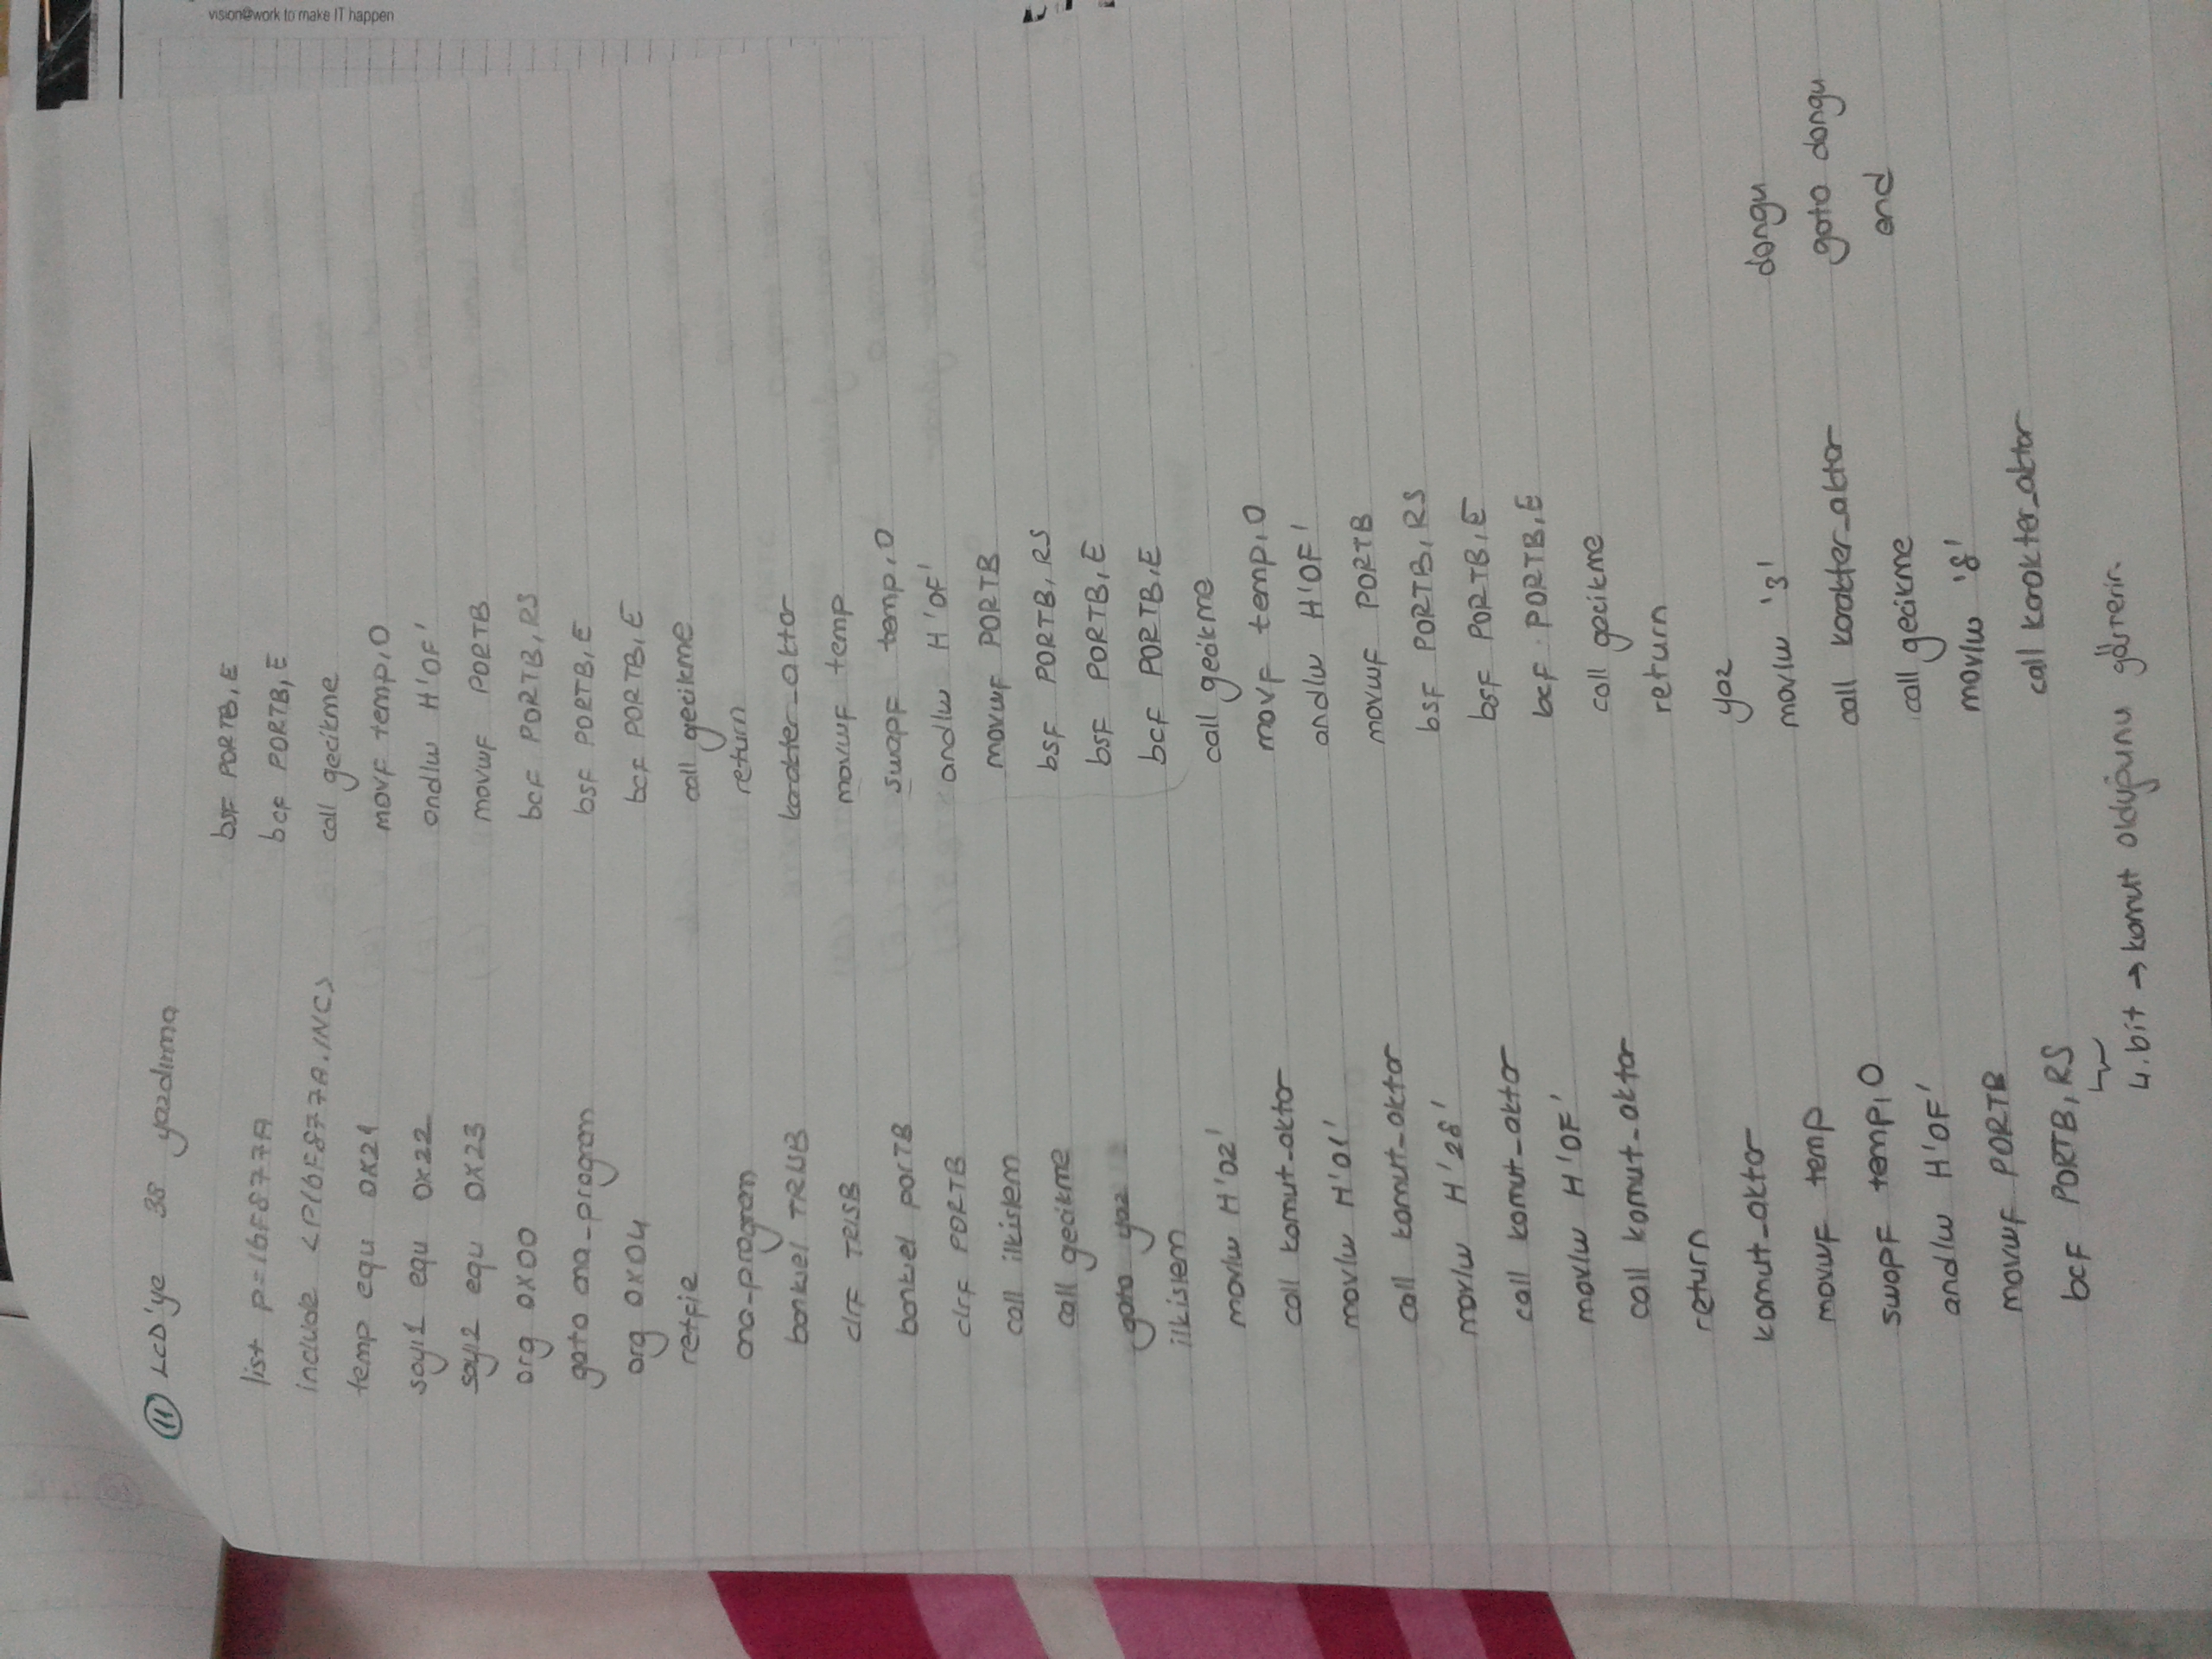 11 LCD'ye 38 yazdırma
list p=16F877A
include <P16F877A.INC>
temp equ 0x21
sayı1 equ 0x22
sayı2 equ 0x23
org 0x00
goto ana_program
org 0x04
retfie
ana_program
banksel TRISB
clrf TRISB
banksel porTB
clrf PORTB
call ilkislem
call gecikme
goto yaz
ilkislem
movlw H'02'
call komut_aktar
movlw H'01'
call komut_aktar
movlw H'28'
call komut_aktar
movlw H'0F'
call komut_aktar
return
komut_aktar
movwf temp
swapf temp,0
andlw H'0F'
movwf PORTB
bcf PORTB,RS
4.bit → komut olduğunu gösterir.
bsf PORTB,E
bcf PORTB,E
call gecikme
movf temp,0
andlw H'0F'
movwf PORTB
bcf PORTB,RS
bsf PORTB,E
bcf PORTB,E
call gecikme
return
karakter_aktar
movwf temp
swapf temp,0
andlw H'0F'
movwf PORTB
bsf PORTB,RS
bsf PORTB,E
bcf PORTB,E
call gecikme
movf temp,0
andlw H'0F'
movwf PORTB
bsf PORTB,RS
bsf PORTB,E
bcf PORTB,E
call gecikme
return
yaz
movlw '3'
call karakter_aktar
call gecikme
movlw '8'
call karakter_aktar
dongu
goto dongu
end
vision@work to make IT happen